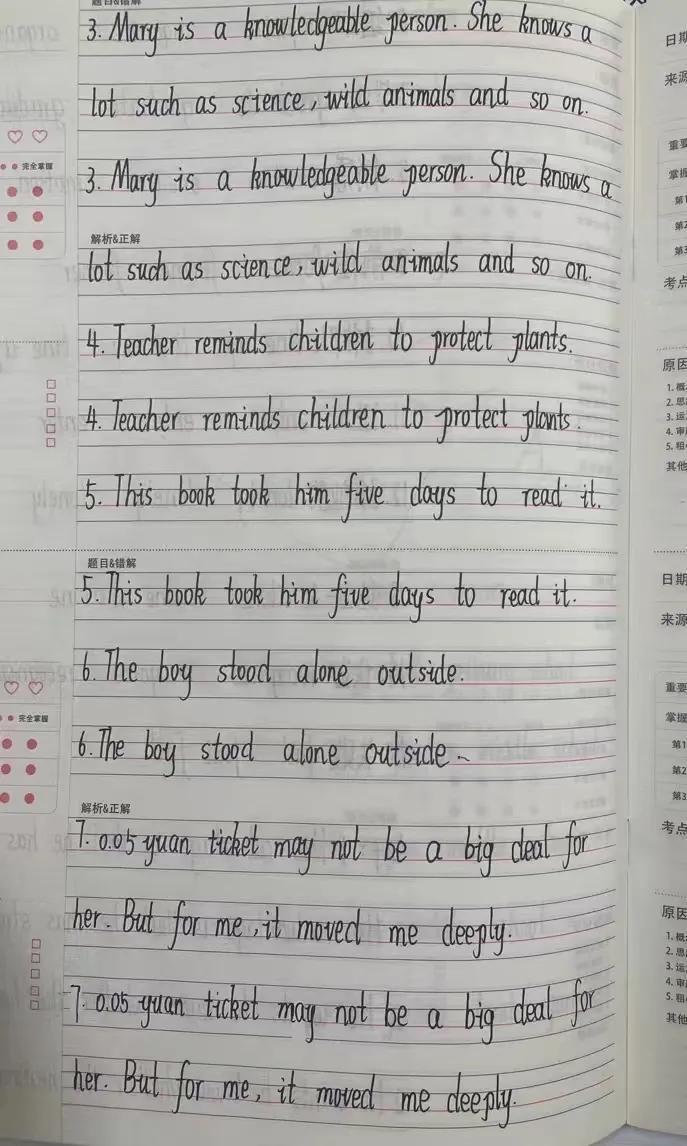 题目&错解
3. Mary is a knowledgeable person. She knows a
lot such as science, wild animals and so on.
完全掌握
3. Mary is a knowledgeable person. She knows a
解析&正解
lot such as science, wild animals and so on.
4. Teacher reminds children to protect plants.
4. Teacher reminds children to protect plants.
5. This book took him five days to read it.
题目&错解
5. This book took him five days to read it.
6. The boy stood alone outside.
完全掌握
6. The boy stood alone outside.
解析&正解
7. 0.05 yuan ticket may not be a big deal for
her. But for me, it moved me deeply.
7. 0.05 yuan ticket may not be a big deal for
her. But for me, it moved me deeply.
日期
来源
重要
掌握
第1
第2
第3
考点
原因
1. 概
2. 思
3. 运
4. 审
5. 粗
其他
日期
来源
重要
掌握
第1
第2
第3
考点
原因
1. 概
2. 思
3. 运
4. 审
5. 粗
其他